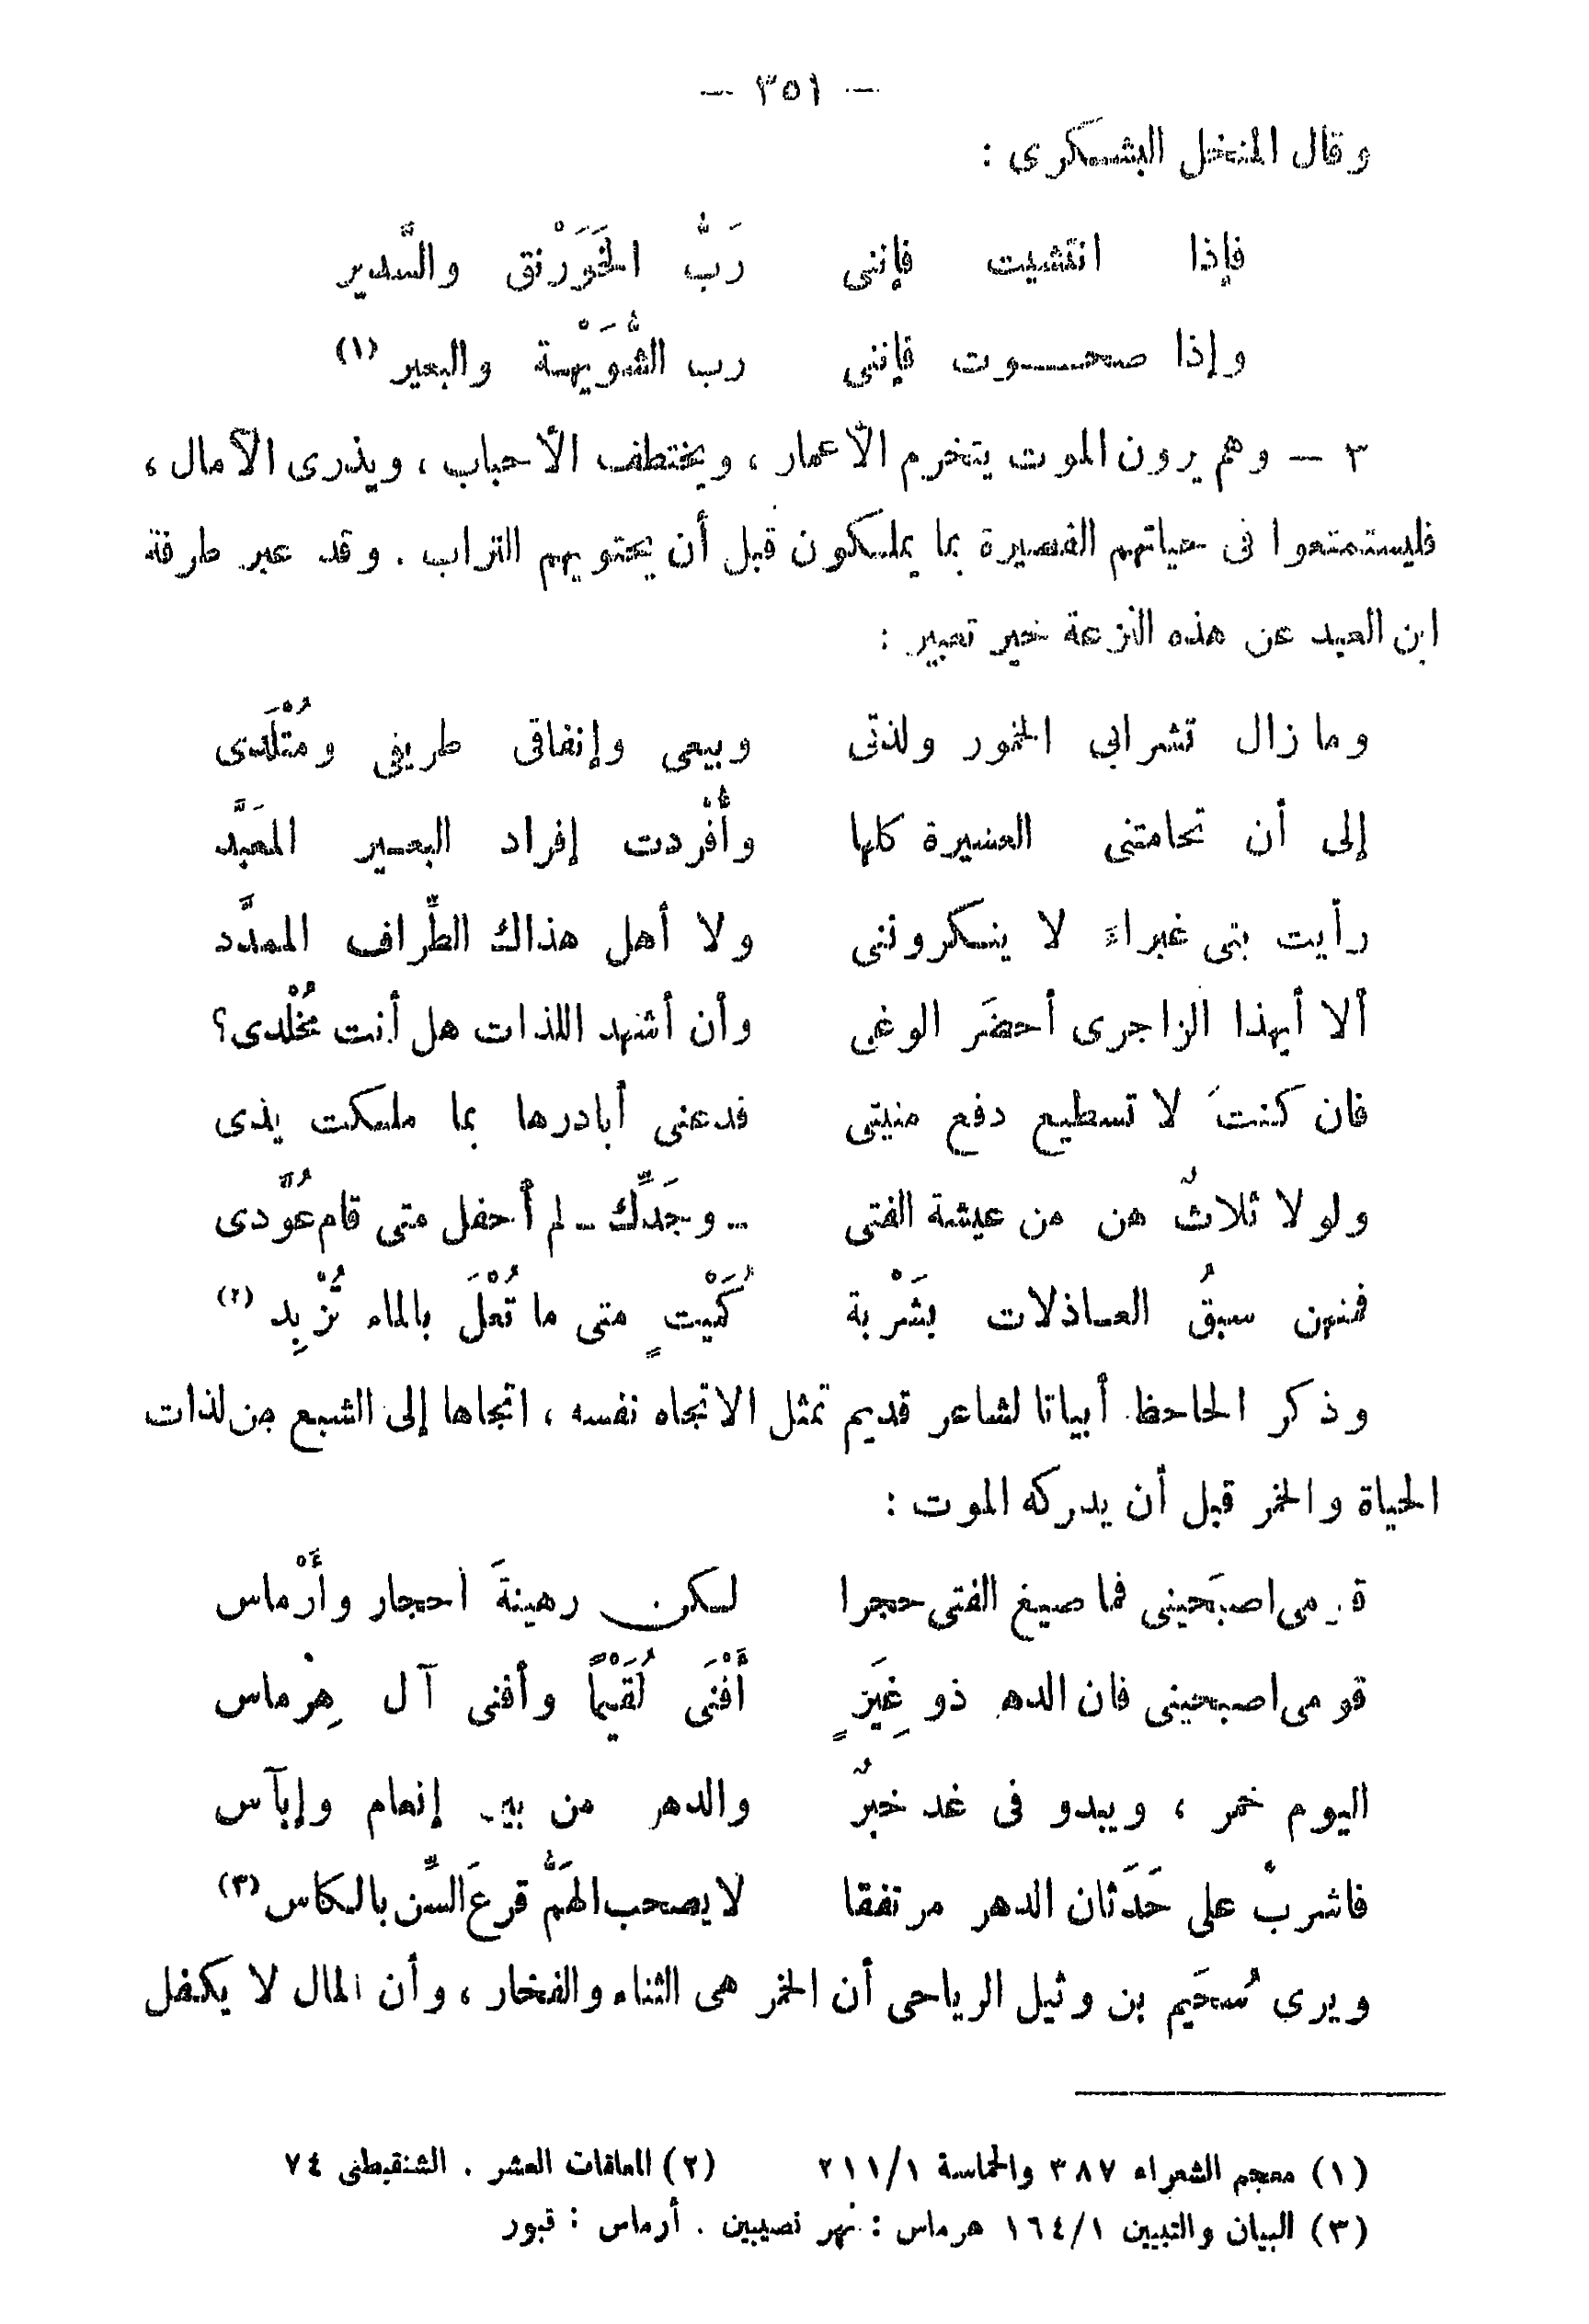 — ٣٥١ —
وقال المنخل اليشكرى :
فإذا انتشيت فإننى رَبُّ الخَوَرْنق والسَّدير
وإذا صحوت فإننى رب الشُّوَيْهة والبعير (١)
٣ — وهم يرون الموت يتخرم الأعمار ، ويختطف الأحباب ، ويذرى الآمال ،
فليستمتعوا فى حياتهم القصيرة بما يملكون قبل أن يحتويهم التراب . وقد عبر طرفة
ابن العبد عن هذه النزعة خير تعبير :
وما زال تشرابى الخمور ولذتى وبيعى وإنفاقى طريفى ومُتْلَدى
إلى أن تحامتنى العشيرة كلها وأُفْردت إفراد البعير المعَبَّد
رأيت بنى غبراءَ لا ينكروننى ولا أهل هذاك الطِّراف الممدَّد
ألا أيهذا الزاجرى أحضَر الوغى وأن أشهد اللذات هل أنت مُخْلدى؟
فان كنتَ لا تسطيع دفع منيتى فدعنى أبادرها بما ملكت يدى
ولولا ثلاثٌ هن من عيشة الفتى – وجَدِّك – لم أحفل متى قام عُوَّدى
فمنهن سبقُ العاذلات بشَرْبة كُمَيْتٍ متى ما تُعْلَ بالماء تُزْبِد (٢)
وذكر الجاحظ أبياتا لشاعر قديم تمثل الاتجاه نفسه ، اتجاها إلى الشبع من لذات
الحياة والخمر قبل أن يدركه الموت :
قومى اصبَحينى فما صيغ الفتى حجرا لكن رهينةَ أحجار وأَرْماس
قومى اصبحينى فان الدهر ذو غِيَرٍ أَفْنَى لُقَيْماً وأفنى آل هِرْماس
اليوم خمر ، ويبدو فى غد خبرٌ والدهر من بين إنعام وإبآس
فاشربْ على حَدَثان الدهر مرتفقا لا يصحب الهَمُّ قرعَ السِّن بالكاس (٣)
ويرى سُحَيم بن وثيل الرياحى أن الخمر هى الثناء والفخار ، وأن المال لا يكفل
(١) معجم الشعراء ٣٨٧ والحماسة ٢١١/١ (٢) المعلقات العشر . الشنقيطى ٧٤
(٣) البيان والتبيين ١٦٤/١ هرماس : نهر نصيبين . أرماس : قبور